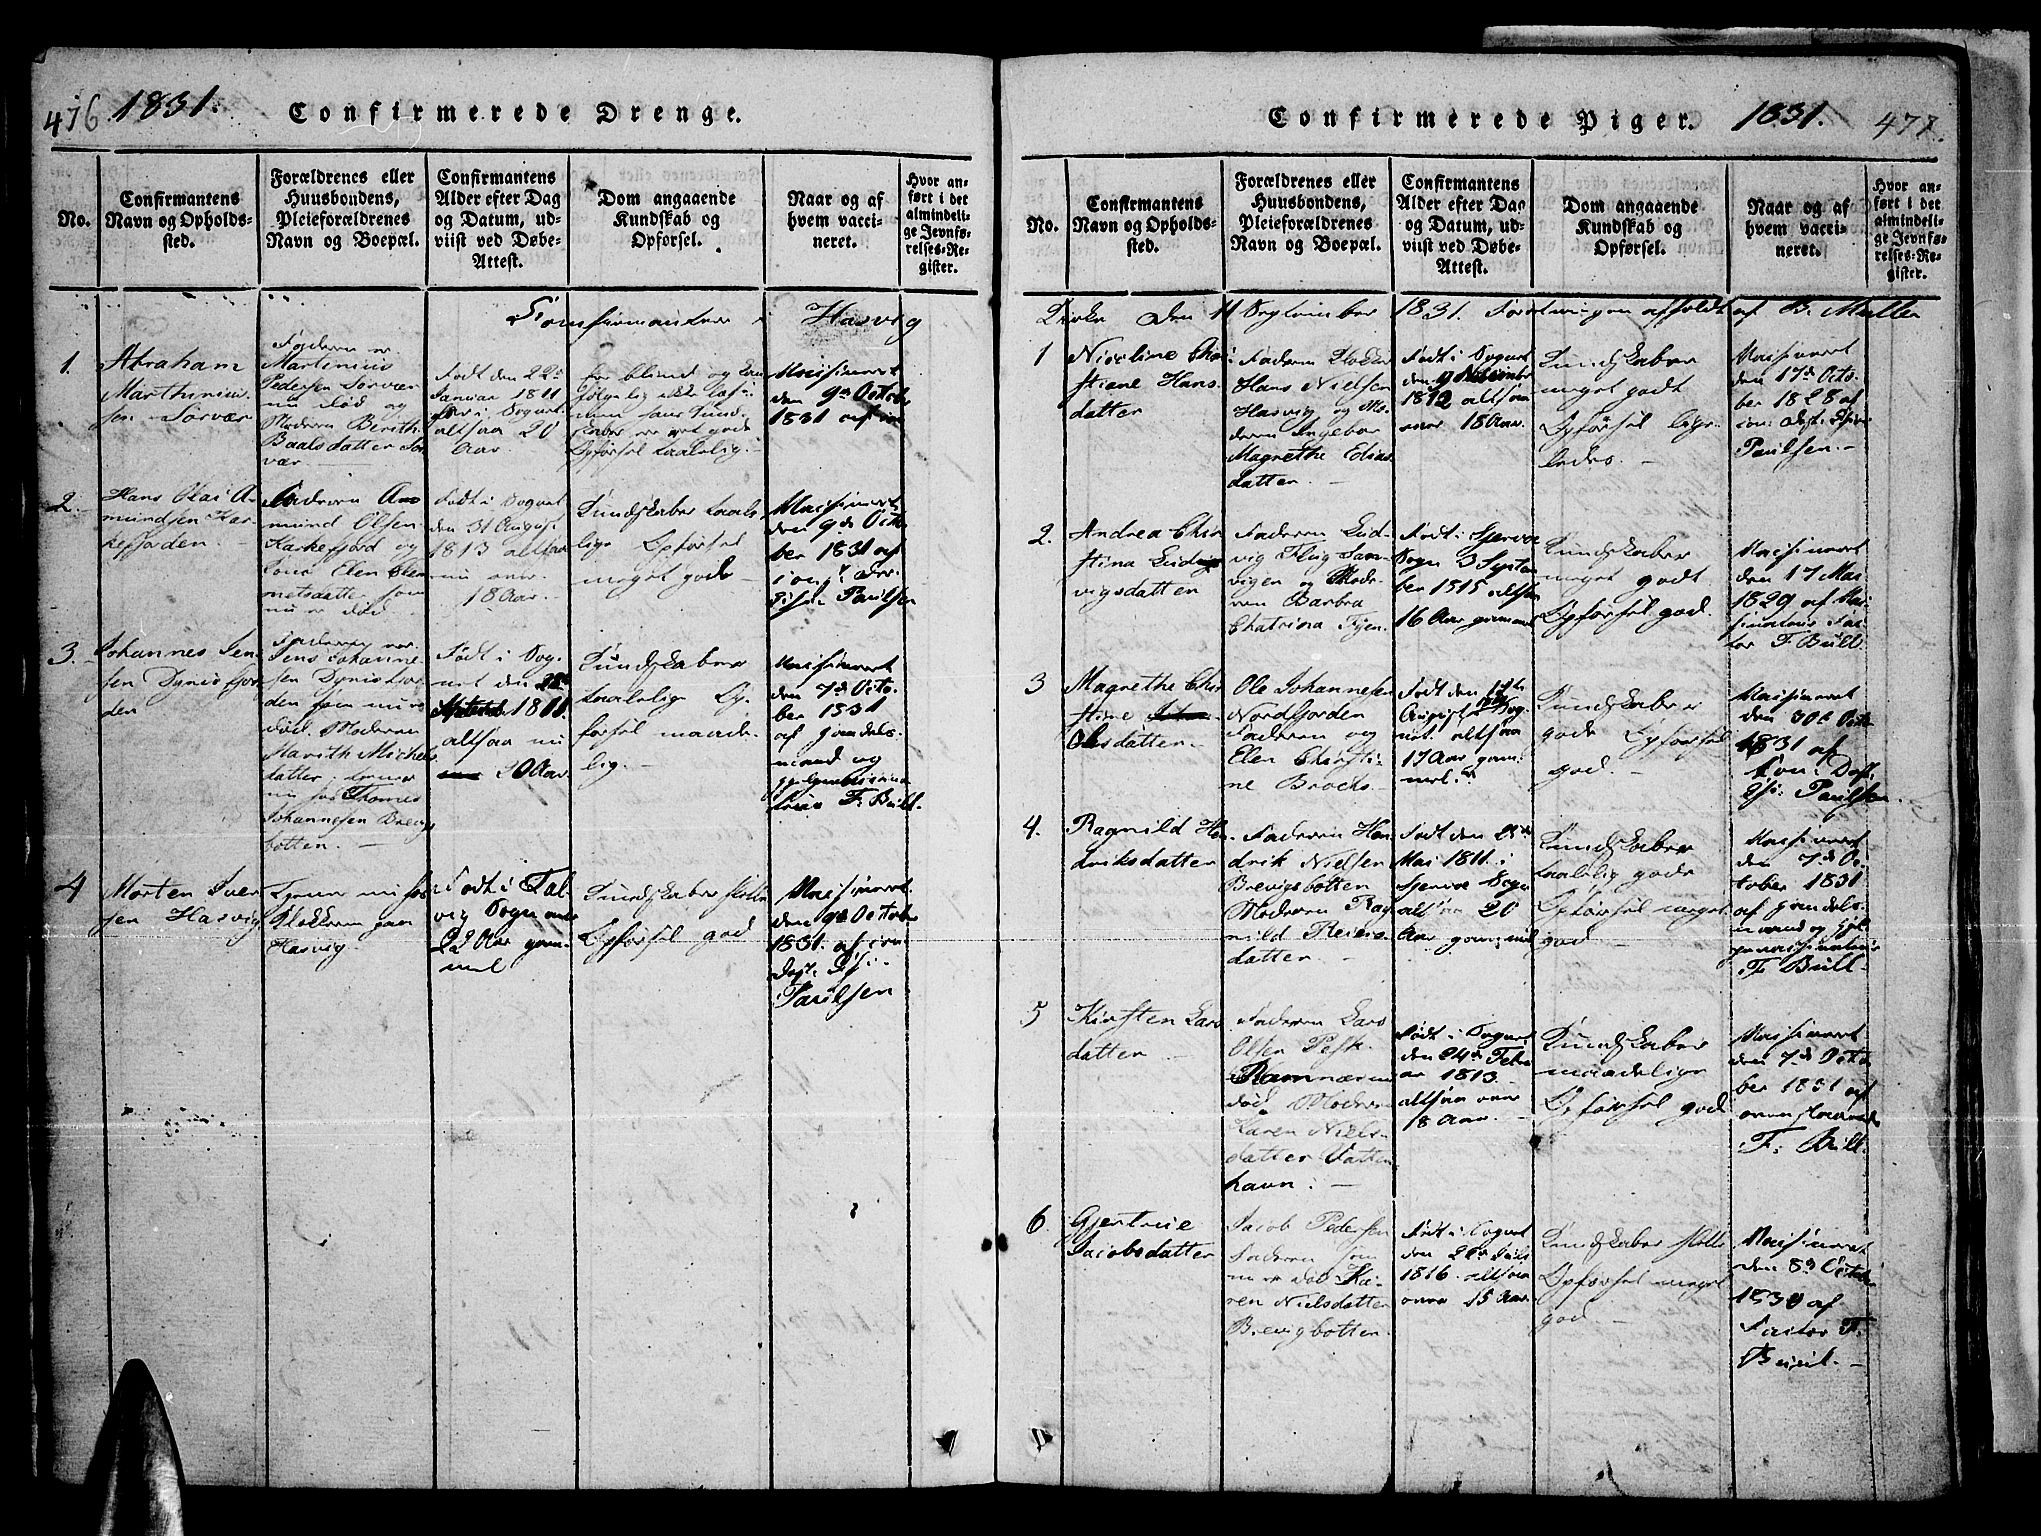 476 1831. Confirmerede Drenge.
No.
Confirmantens
Navn og Opholds-
sted.
Forældrenes eller
Huusbondens,
Pleieforældrenes
Navn og Boepæl.
Confirmantens
Alder efter Dag
og Datum, ud-
viist ved Døbe-
Attest.
Dom angaaende
Kundskab og
Opførsel.
Naar og af
hvem vacci-
neret.
Hvor an-
ført i det
almindeli-
ge Jevnfø-
relses-Re-
gister.
Confirmanter i Hasvig
1.
Abraham
Marthinius-
sen Sørvær
Faderen er
Martinius
Pedersen Sørvær
nu død og
Moderen Berith
Baalsdatter Sør
vær. —
Født den 22de
Januar 1811
her i Sognet
altsaa 20
Aar.
før blind og
følgelig ikke
Opførsel taalelig. —
Vaksineret
den 9de October
1831 af
2.
Hans Olai A-
mundsen Kar-
kefjorden. —
Faderen A
mund Olsen
Karkefjord og
Kone Elen Cle
metsdatter som
nu er død.
Født i Sognet
den 31 August
1813 altsaa
nu over
18 Aar.
Kundskaber taale-
lige Opførsel
meget gode —
Vaksineret
den 9de Octo
ber 1831 af
Paulsen
3.
Johannes Jen-
sen Dynisfjor-
den
Faderen var
Jens Johanne-
sen Dynisfjor-
den som nu er
død. Moderen
Marith Michels
datter, tjener
nu hos Thomas
Johannesen Brevigs
botten. —
Født i Sog-
net den
1811.
altsaa nu
20 Aar.
Kundskaber
taalelig Op-
førsel maade-
lig. —
Vaksineret
den 7de Octo-
ber 1831
af Handels-
mand og
F. Bull.
4
Morten Iver
sen Hasvig
Tjener nu hos
Klokkeren paa
Hasvig.
Født i Tal-
vig Sogn
22 Aar gam-
mel
Kundskaber slette
Opførsel god
Vaksineret
den 9de October
1831. af
Paulsen
Confirmerede Piger. 1831. 477.
No.
Confirmantens
Navn og Opholds-
sted.
Forældrenes eller
Huusbondens,
Pleieforældrenes
Navn og Boepæl.
Confirmantens
Alder efter Dag
og Datum, ud-
viist ved Døbe-
Attest.
Dom angaaende
Kundskab og
Opførsel.
Naar og af
hvem vacci-
neret.
Hvor an-
ført i det
almindeli-
ge Jevnfø-
relses-Re-
gister.
Kirke den 11 September 1831. Forretningen afholdt af B. Müller
1
Nicoline Chri-
stiane Hans-
datter
Faderen
Hans Nielsen
Hasvig og Mo-
deren Ingebor
Magrethe Edias
datter. —
Født i Sognet
den 9 November
1812 altsaa
over 18 Aar.
Kundskaber
meget godt
Opførsel lige-
ledes. —
Vaksineret
den 17de Octo
ber 1828 af
Paulsen. —
2.
Andrea Chri
stina Lud
vigsdatter
Faderen Lud-
vig Flug San-
vigen og Mode-
ren Barbra
Chatrina Fyen.
Født i
Sogn 3 Septem
ber 1815 altsaa
16 Aar gammel
Kundskaber
meget godt
Opførsel god.
Vaksineret
den 17 Mai
1829 af
F. Bull.
3
Magrethe Chri
stine
Olesdatter. —
Ole Johannesen
Nordfjorden
Faderen og
Elen Christi-
ne Brocks.
Født den
August i Sog-
net. altsaa
17 Aar gam-
mel.
Kundskaber
gode Opførsel
god. —
Vaksineret
den 30te Octo
1831 af
Paulsen.
4.
Ragnild Hen-
driksdatter
Faderen Hen-
drik Nielsen
Brevigsbotten
Moderen Rag
nild Reiers
datter. —
Født den
Mai 1811. i
Sogn
altsaa 20
Aar gammel
Kundskaber
taalelig gode
Opførsel meget
god —
Vaksineret
den 7de Oc-
tober 1831
af Handels-
mand og
F. Bull.
5
Kirsten Lars
datter —
Faderen Lars
Olsen
Ramnæs nu
død. Moderen
Karen Niels-
datter Vatten
havn. —
Født i Sognet
den 24de Febru
ar 1813.
altsaa over
18 Aar. —
Kundskaber
maadelige
Opførsel god
Vaksineret
den 7de Octo-
ber 1831 af
F. Bull.
6.
Gjertrue
Jacobsdatter
Jacob Pedersen
Faderen som
nu er død Ka-
ren Nielsdatter
Brevigbotten.
Født i Sognet
den 22de Juli
1816. altsaa
over 15 Aar.
Kundskaber slette
Opførsel meget
god. —
Vaksineret
den 8de Octob
1830 af
Factor F.
Bull. —